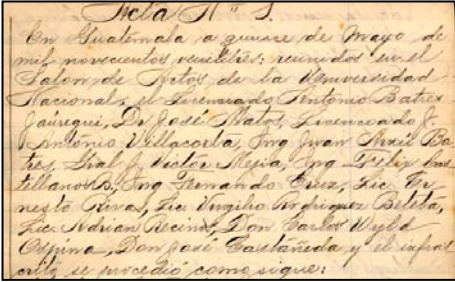 Acta Nº 1.
En Guatemala a quince de Mayo de
mil novecientos veintitrés: reunidos en el
Salon de Actos de la Universidad
Nacional, el Licenciado Antonio Batres
Jaúregui, Dr José Matos, Licenciado J.
Antonio Villacorta, Ing Juan Arzú Ba-
tres, Gral J. Victor Mejía, Ing Felix Cas-
tellanos B, Ing Fernando Cruz, Lic Er-
nesto Rivas, Lic Virgilio Rodriguez Beteta,
Lic Adrian Recinos, Don Carlos Wyld
Ospina, Don José Castañeda y el infras-
crito se procedió como sigue: